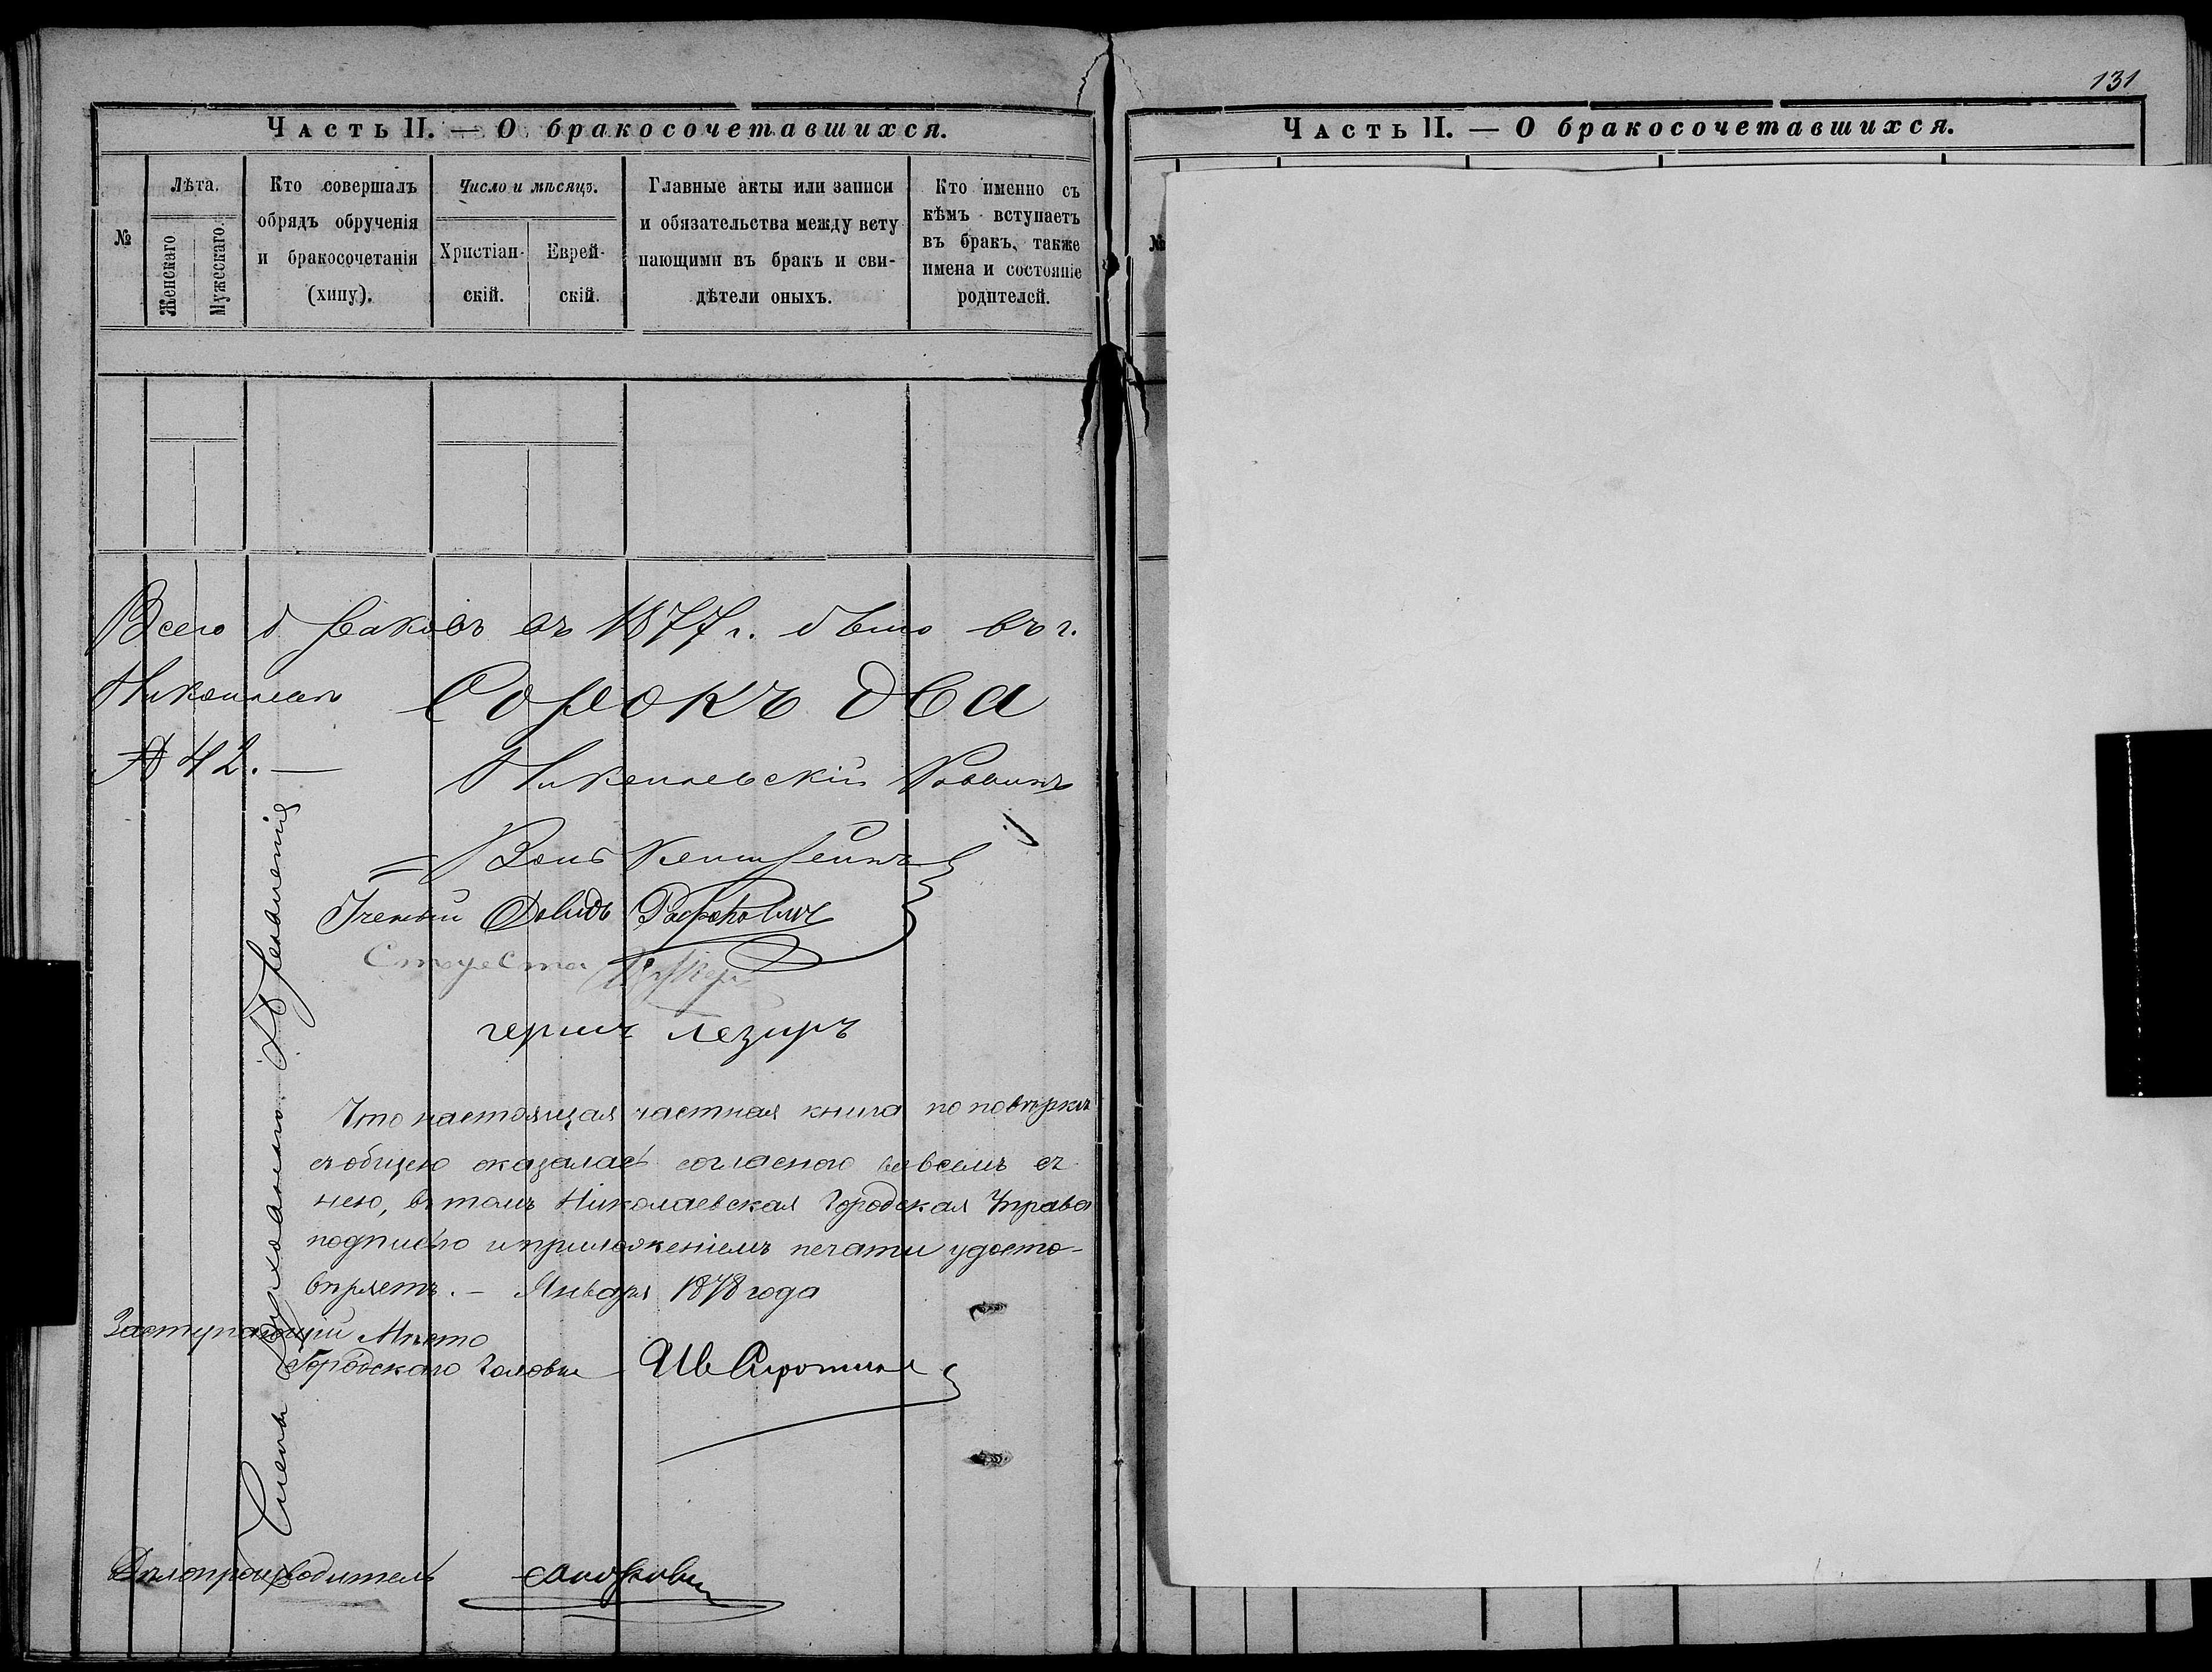 131
Часть II. — О бракосочетавшихся.
№
Лѣта.
Женскаго.
Мужескаго.
Кто совершалъ
обрядъ обрученія
и бракосочетанія
(хипу).
Число и мѣсяцъ.
Христіан-
скій.
Еврей-
скій.
Главные акты или записи
и обязательства между всту
пающими въ бракъ и сви-
дѣтели оныхъ.
Кто именно съ
кѣмъ вступаетъ
въ бракъ, также
имена и состояніе
родителей.
Всего браковъ въ 1877 г. было въ г.
Сорокъ два
№ 42. —
Раввинъ
Ученый Давидъ
Староста
герш лезиръ
Что настоящая частная книга по повѣркѣ
съ общею оказалась согласною во всемъ съ
нею, въ томъ Николаевская Городская Управа
подписью и приложеніемъ печати удосто-
вѣряетъ. — Января 1878 года
Заступающій Мѣсто
Городскаго Головы
Дѣлопроизводитель
Часть II. — О бракосочетавшихся.
№